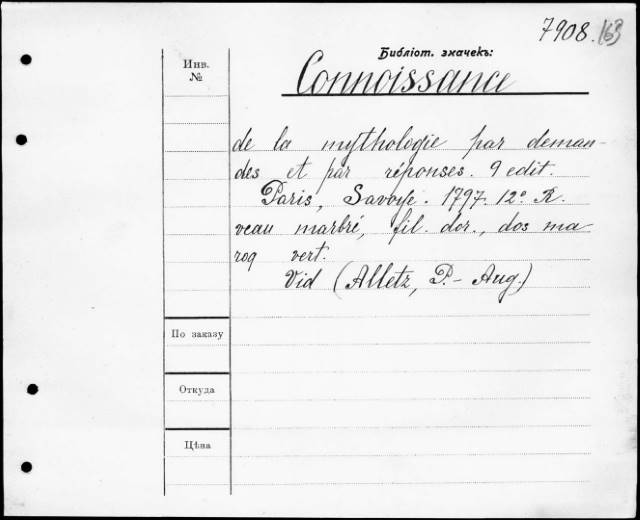 7908. 163
Библіот. значекъ:
Инв.
№
Connoissance
de la mythologie par deman-
des et par réponses. 9 edit.
Paris, Savoye. 1797. 12º R.
veau marbré, fil. dor., dos ma
roq vert.
Vid (Alletz, P.- Aug.)
По заказу
Откуда
Цѣна